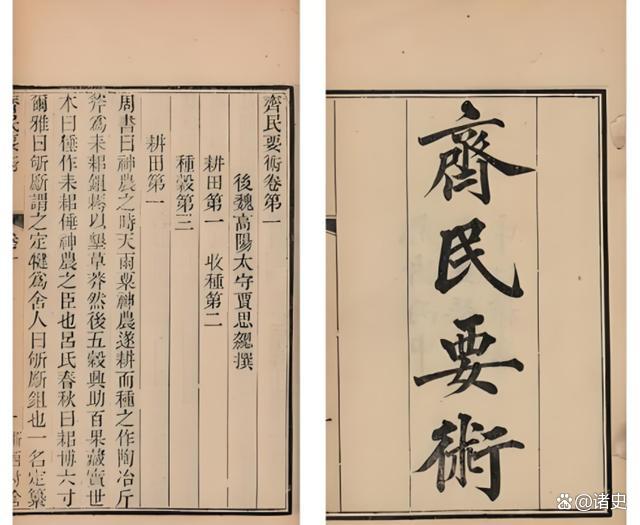 齊民要術
齊民要術卷第一
後魏高陽太守賈思勰撰
耕田第一 收種第二
種穀第三
耕田第一
周書曰神農之時天雨粟神農遂耕而種之作陶冶斤
斧爲耒耜鉏耨以墾草莽然後五穀興助百果藏實世
本曰倕作耒耜倕神農之臣也呂氏春秋曰耜博六寸
爾雅曰斪斸謂之定犍爲舍人曰斪斸鉏也一名定纂
齊民要術
@诸史